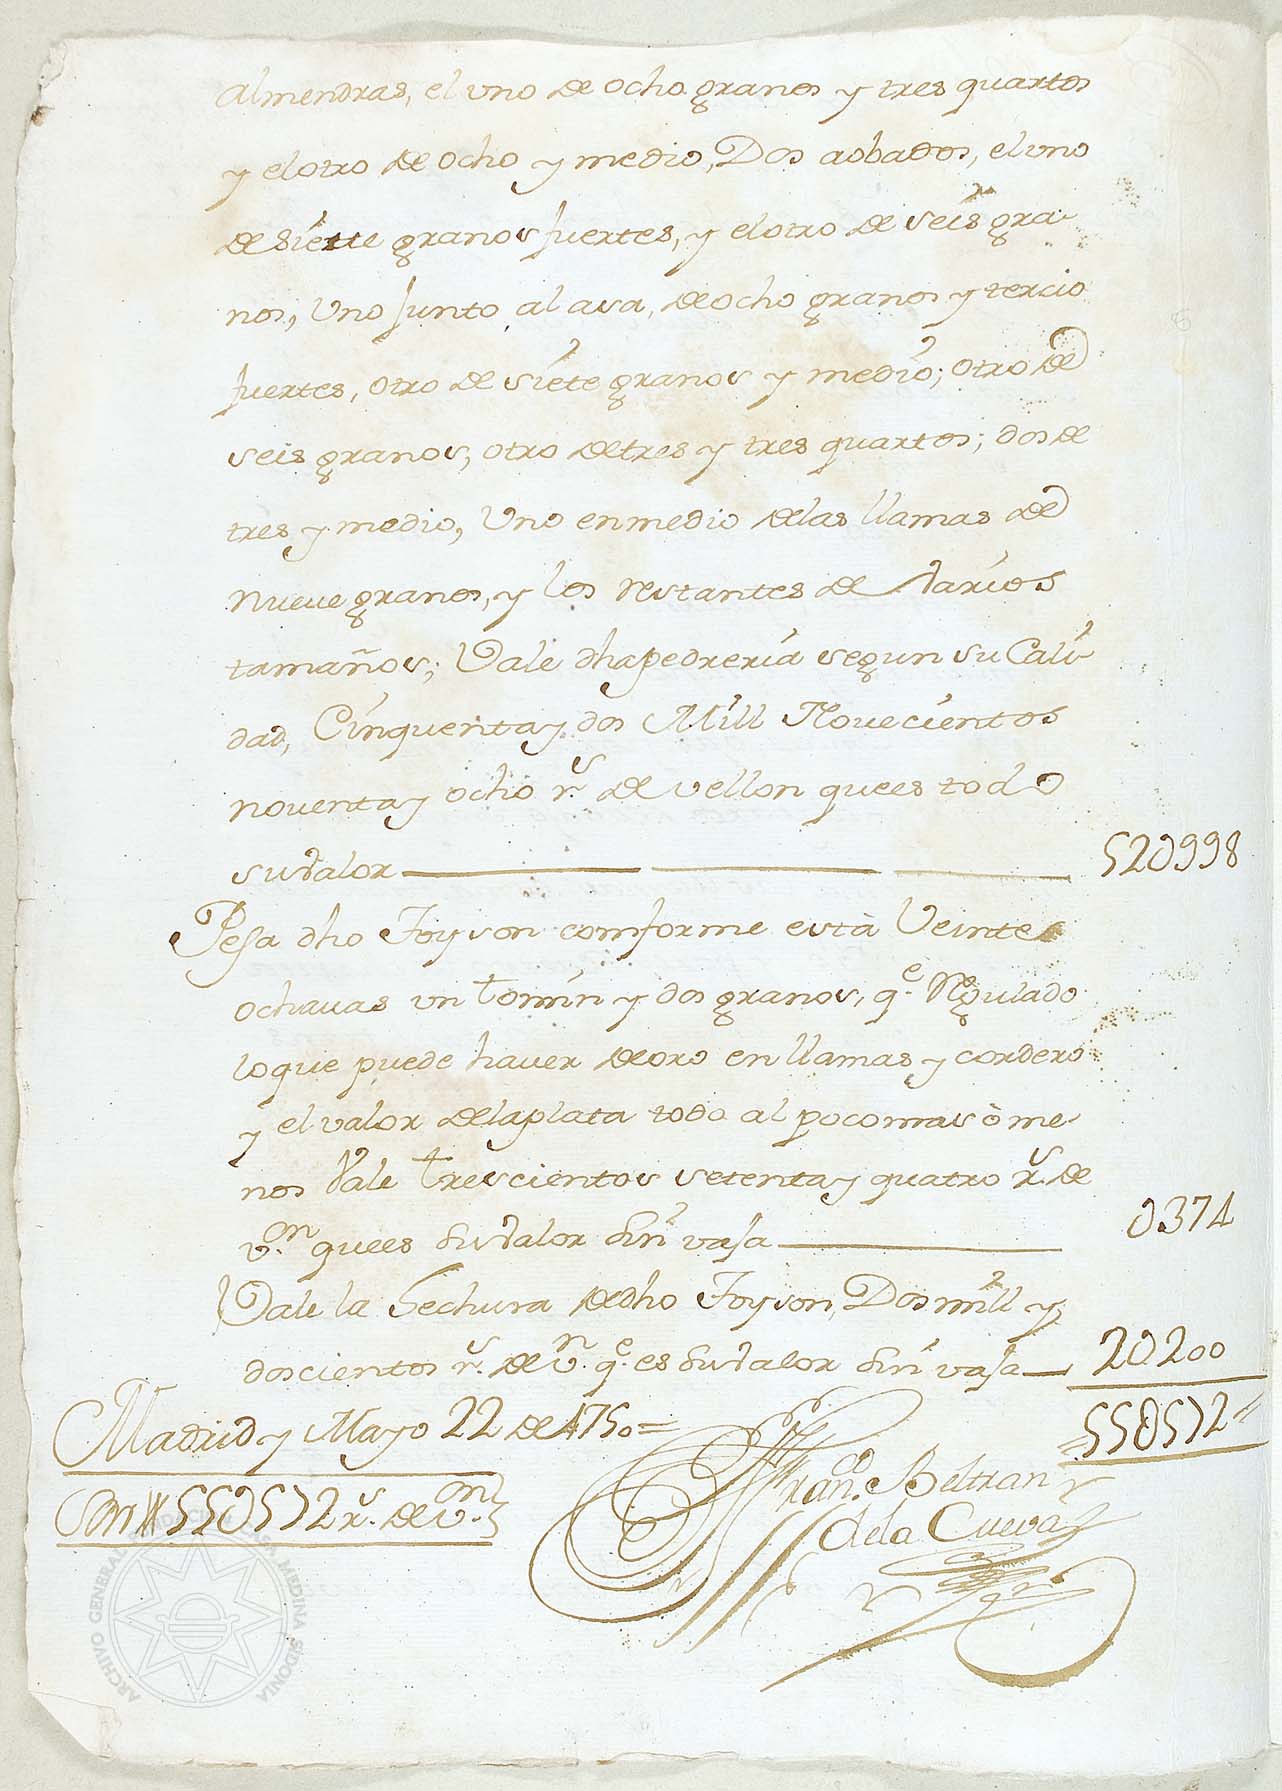 almendras, el uno de ocho granos y tres quartos
y el otro de ocho y medio, Dos aobados, el uno
de siette granos fuertes, y el otro de seis gra-
nos, Uno junto al asa, de ocho granos y tercio
fuertes, otro de siete granos y medio; otro de
seis granos, otro de tres y tres quartos; dos de
tres y medio, Uno en medio de las llamas de
nueve granos, y los restantes de Varios
tamaños; Vale dha pedreria segun su Cali-
dad, Cinquenta y dos Mill Novecientos
noventa y ocho rs. de vellon que es todo
su Valor 52U998
Pesa dho Joyson comforme està Veinte
ochavas un tomin y dos granos, qe. Regulado
lo que puede haver de oro en llamas y cordero
y el valor de la plata todo al poco mas ò me-
nos Vale trescientos setenta y quatro rs. de
von. que es su Valor sin vasa U374
Vale la hechura de dho Joyson, Dos mill y
doscientos rs. de vn. qe. es su Valor sin vasa 2U200
Madrid y Mayo 22 de 1750= 55U572
Son 55U572 rs. de von.
Franco. Beltran
de la Cueva
ARCHIVO GENERAL FUNDACION CASA MEDINA SIDONIA